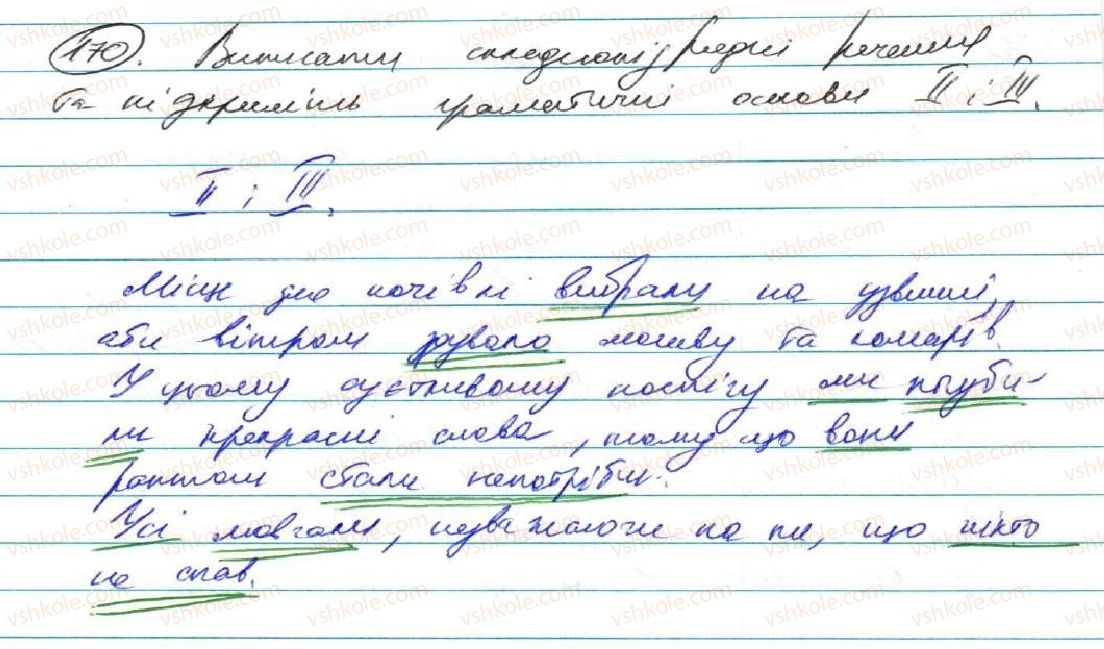 170. Виписати складнопідрядні речення
та підкресліть граматичні основи II і III.
II і III.
Місце для ночівлі вибрали на узвишші,
аби вітром здувало мошву та комарів.
У цьому суєтливому поспіху ми погуби-
ли прекрасні слова, тому що вони
раптом стали непотрібні.
Усі мовчали, незважаючи на те, що ніхто
не спав.